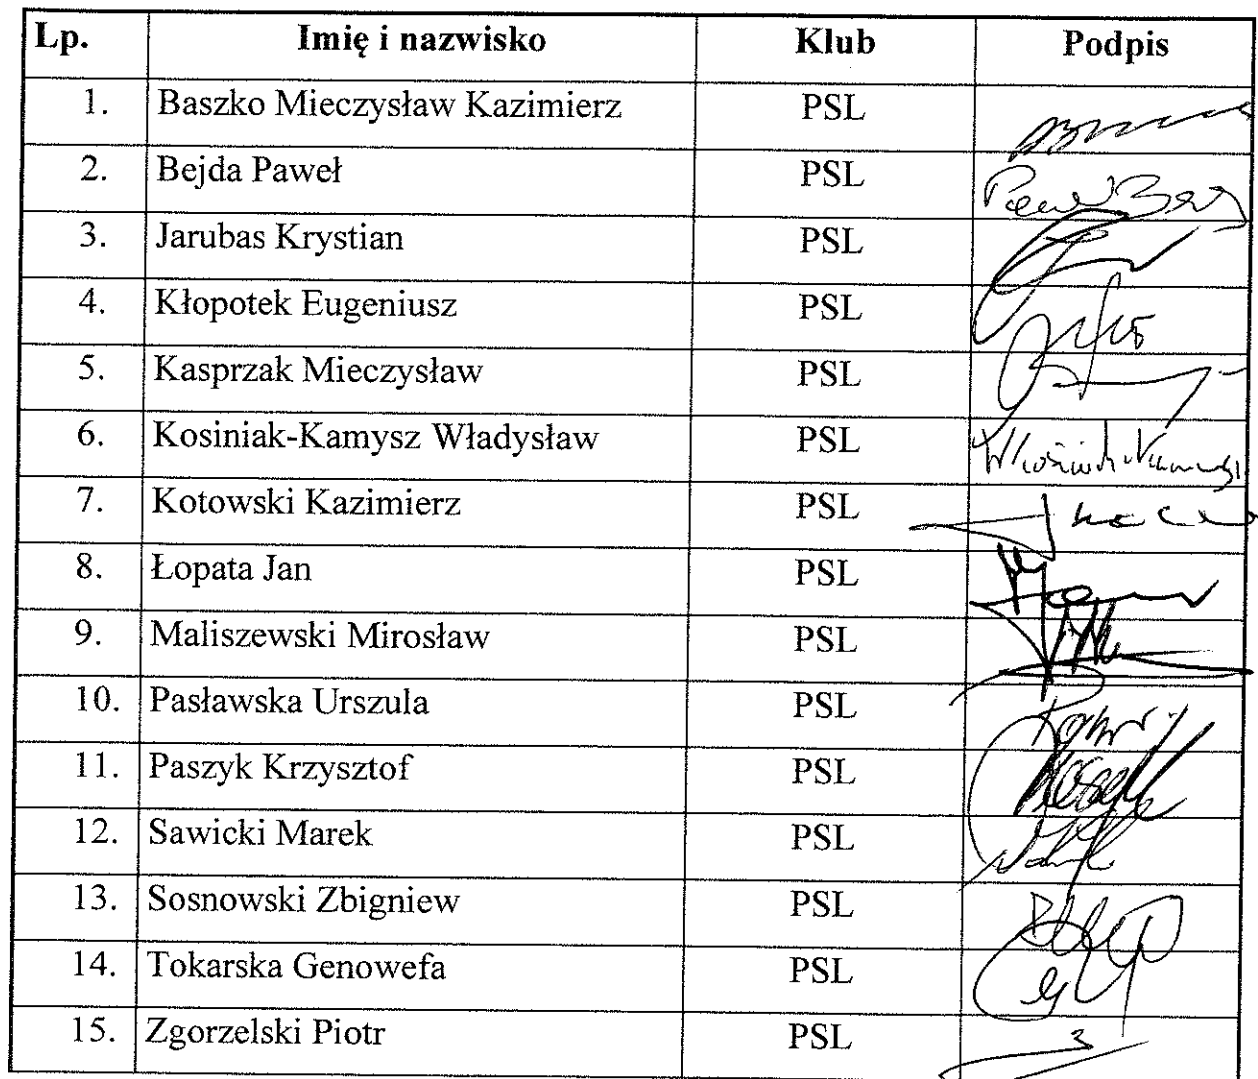 Lp. Imię i nazwisko Klub Podpis
1. Baszko Mieczysław Kazimierz PSL
2. Bejda Paweł PSL
3. Jarubas Krystian PSL
4. Kłopotek Eugeniusz PSL
5. Kasprzak Mieczysław PSL
6. Kosiniak-Kamysz Władysław PSL
7. Kotowski Kazimierz PSL
8. Łopata Jan PSL
9. Maliszewski Mirosław PSL
10. Pasławska Urszula PSL
11. Paszyk Krzysztof PSL
12. Sawicki Marek PSL
13. Sosnowski Zbigniew PSL
14. Tokarska Genowefa PSL
15. Zgorzelski Piotr PSL